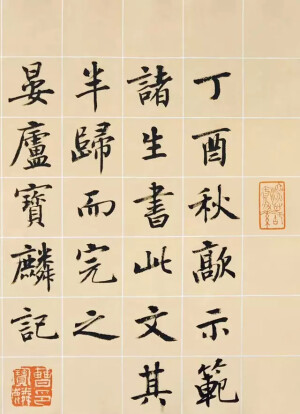 丁酉秋示範
諸生書此文其
半歸而完之
晏廬寶麟記
曹印寶麟